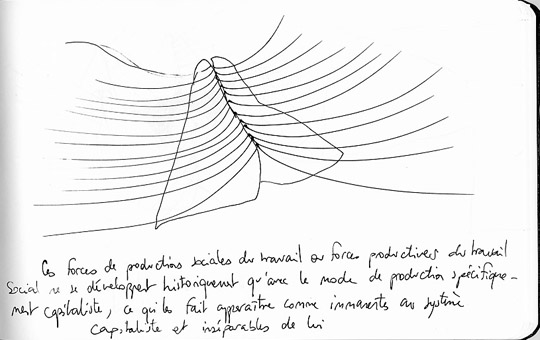 Ces forces de productions sociales du travail ou forces productives du travail
social ne se développent historiquement qu'avec le mode de production spécifique-
ment capitaliste, ce qui les fait apparaître comme immanentes au système
capitaliste et inséparables de lui